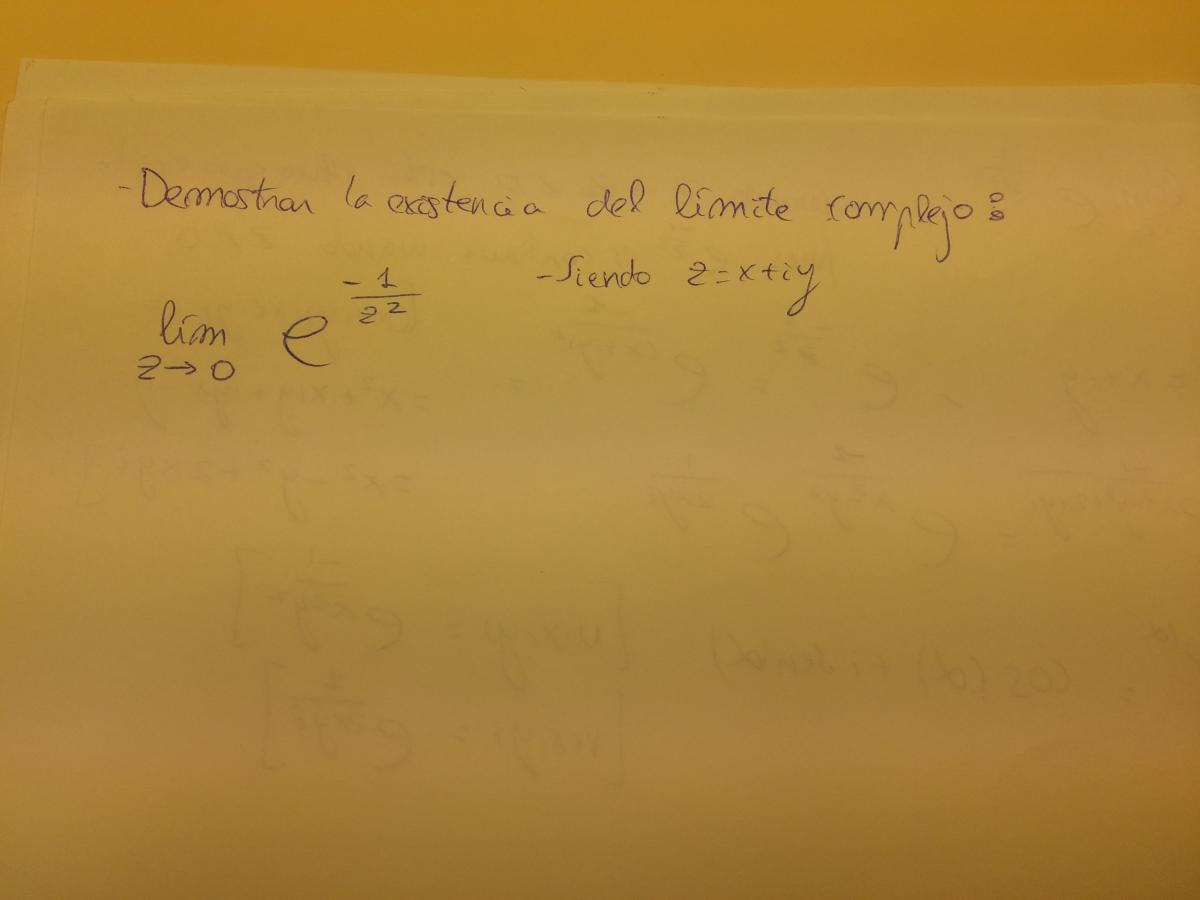 - Demostrar la existencia del límite complejo:
- Siendo z = x + iy
lím z→0 e^(-1/z²)